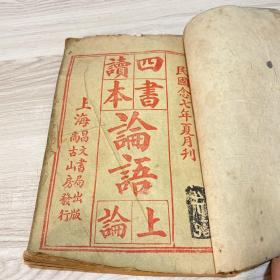 民國念七年夏月刊
四書
讀本
論語
上
論
上海昌文書局出版
尚古山房發行